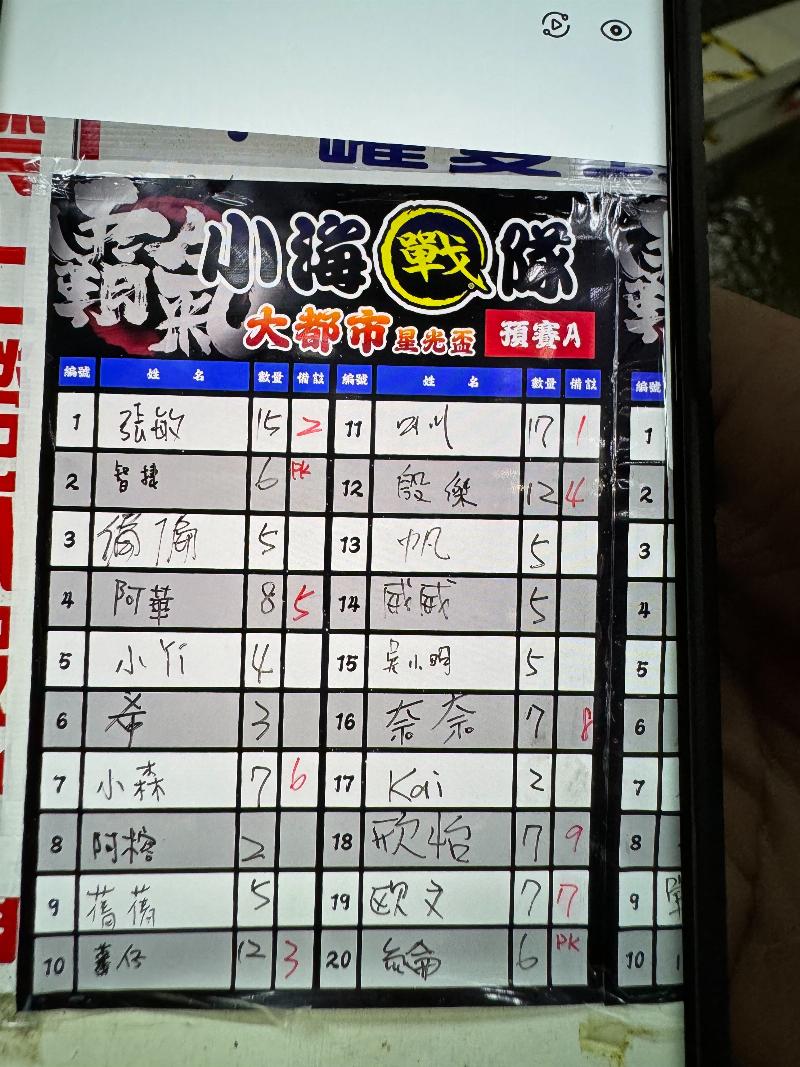 霸氣
小海戰隊
大都市星光盃 預賽A
編號 姓名 數量 備註 編號 姓名 數量 備註 編號
1 張敏 15 2 11 叫川 17 1 1
2 智捷 6 PK 12 殷傑 12 4 2
3 5 13 帆 5 3
4 阿華 8 5 14 威威 5 4
5 小Yi 4 15 吳小明 5 5
6 希 3 16 奈奈 7 8 6
7 小森 7 6 17 Kai 2 7
8 阿榕 2 18 欣怡 7 9 8
9 蒨蒨 5 19 欧文 7 7 9
10 薯仔 12 3 20 6 PK 10